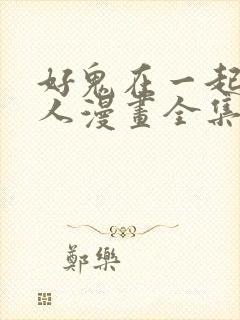 好鬼在一起
人漫畫全集
鄭樂